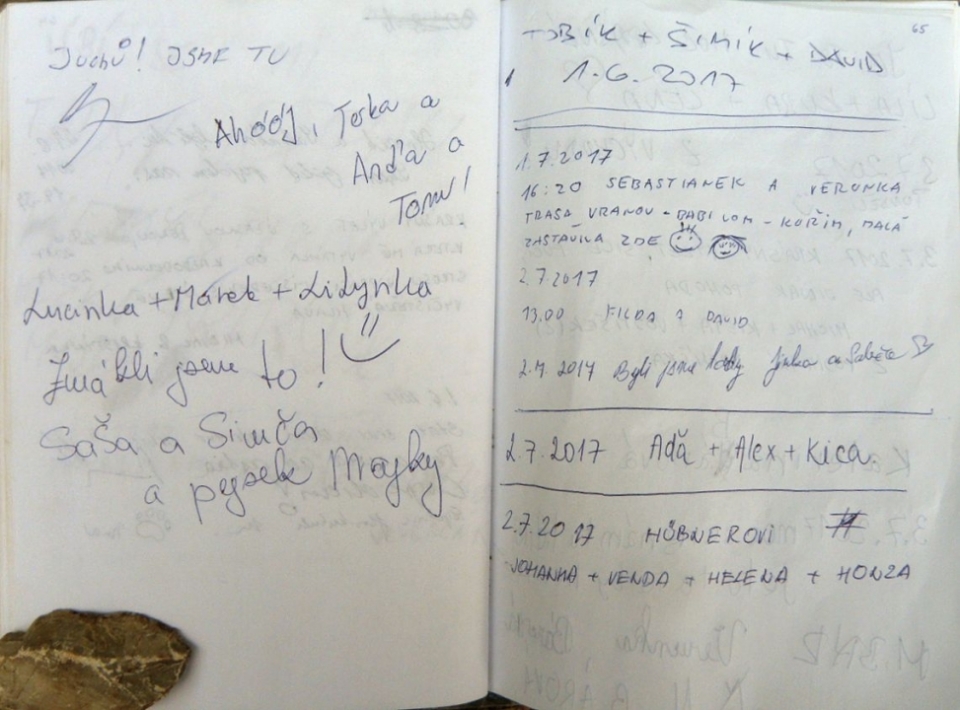 Juchů! JSME TU
Ahóój, Terka a
Anďa a
Tom!
Lucinka + Marek + Lidynka
Zmákli jsme to!
Saša a Simča
a pejsek Majky
65
TOBÍK + ŠIMÍK + DAVID
1.6.2017
1.7.2017
16:20 SEBASTIANEK A VERUNKA
TRASA VRANOV - BABI LOM - KUŘIM, MALÁ
ZASTÁVKA ZDE
2.7.2017
13.00 FILDA a DAVID
2.7.2017 Byli jsme tady Jinka a
2.7.2017 Adă + Alex + Kica
2.7.2017 HÜBNEROVI
JOHANKA + VENDA + HELENA + HONZA